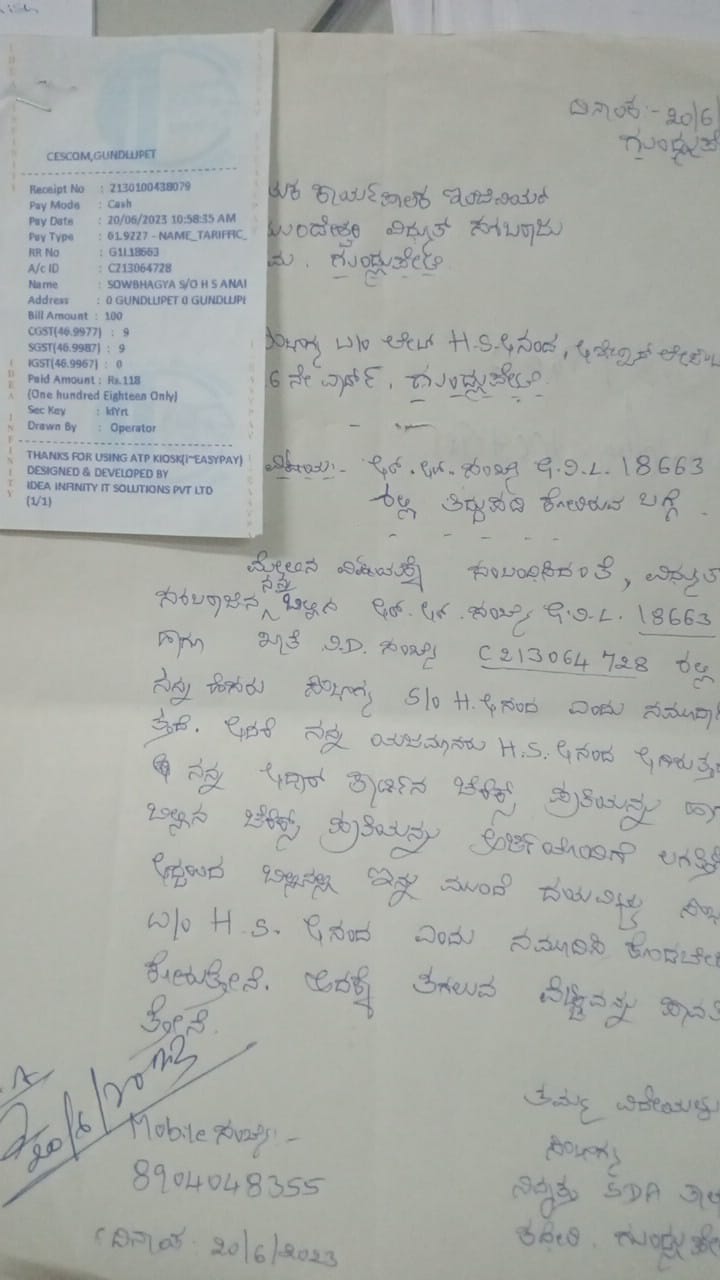 CESCOM,GUNDLUPET
Receipt No : 2130100438079
Pay Mode : Cash
Pay Date : 20/06/2023 10:58:35 AM
Pay Type : 61.9227 - NAME_TARIFFC_
RR No : G1L18663
A/c ID : C213064728
Name : SOWBHAGYA S/O H S ANAI
Address : 0 GUNDLUPET 0 GUNDLUPI
Bill Amount : 100
CGST(46.9977) : 9
SGST(46.9987) : 9
IGST(46.9967) : 0
Paid Amount : Rs.118
(One hundred Eighteen Only)
Sec Key : kIYrt
Drawn By : Operator
THANKS FOR USING ATP KIOSK(I~EASYPAY)
DESIGNED & DEVELOPED BY
IDEA INFINITY IT SOLUTIONS PVT LTD
(1/1)
ದಿನಾಂಕ:- 20/6/
ಗುಂಡ್ಲುಪೇ
ಯಕ ಕಾರ್ಯಪಾಲಕ ಇಂಜಿನಿಯರ್
ಮುಂಡೇಶ್ವರಿ ವಿದ್ಯುತ್ ಸರಬರಾಜು
ಮ. ಗುಂಡ್ಲುಪೇಟೆ.
W/o ಲೇಟ್ H.S. ಆನಂದ,
6 ನೇ ವಾರ್ಡ್, ಗುಂಡ್ಲುಪೇಟೆ.
ವಿಷಯ:- ಆರ್. ಆರ್. ಸಂಖ್ಯೆ ಜಿ.ಐ.L. 18663
ರಲ್ಲಿ ತಿದ್ದುಪಡಿ ಕೋರಿರುವ ಬಗ್ಗೆ.
ಮೇಲಿನ ವಿಷಯಕ್ಕೆ ಸಂಬಂಧಿಸಿದಂತೆ, ವಿದ್ಯುತ್
ಸರಬರಾಜಿನ ನನ್ನ ಬಿಲ್ಲಿನ ಆರ್. ಆರ್. ಸಂಖ್ಯೆ ಜಿ.ಐ.L. 18663
ಹಾಗೂ ಖಾತೆ ಐ.D. ಸಂಖ್ಯೆ C213064728 ರಲ್ಲಿ
ನನ್ನ ಹೆಸರು ಸೌಭಾಗ್ಯ S/o H. ಆನಂದ ಎಂದು ನಮೂದಾಗಿ
ತ್ತದೆ. ಆದರೆ ನನ್ನ ಯಜಮಾನರು H.S. ಆನಂದ ಆಗಿರುತ್ತ
ನನ್ನ ಆಧಾರ್ ಕಾರ್ಡಿನ ಜೆರಾಕ್ಸ್ ಪ್ರತಿಯನ್ನು ಹಾಗ
ಬಿಲ್ಲಿನ ಜೆರಾಕ್ಸ್ ಪ್ರತಿಯನ್ನು ಅರ್ಜಿಯೊಂದಿಗೆ ಲಗತ್ತಿಸಿ
ಆದ್ದರಿಂದ ಬಿಲ್ಲಿನಲ್ಲಿ ಇನ್ನು ಮುಂದೆ ದಯವಿಟ್ಟು ಸೌಭಾ
W/o H.S. ಆನಂದ ಎಂದು ನಮೂದಿಸಿ ಕೊಡಬೇಕ
ಕೋರುತ್ತೇನೆ. ಅದಕ್ಕೆ ತಗಲುವ ವೆಚ್ಚವನ್ನು ಪಾವತಿ
ತ್ತೇನೆ.
20/6/2023
Mobile ಸಂಖ್ಯೆ:-
8904048355
ದಿನಾಂಕ: 20/6/2023
ತಮ್ಮ ವಿಧೇಯಳು
ಸೌಭಾಗ್ಯ
ನಿವೃತ್ತ SDA ತಾಲ
ಕಚೇರಿ. ಗುಂಡ್ಲುಪೇ